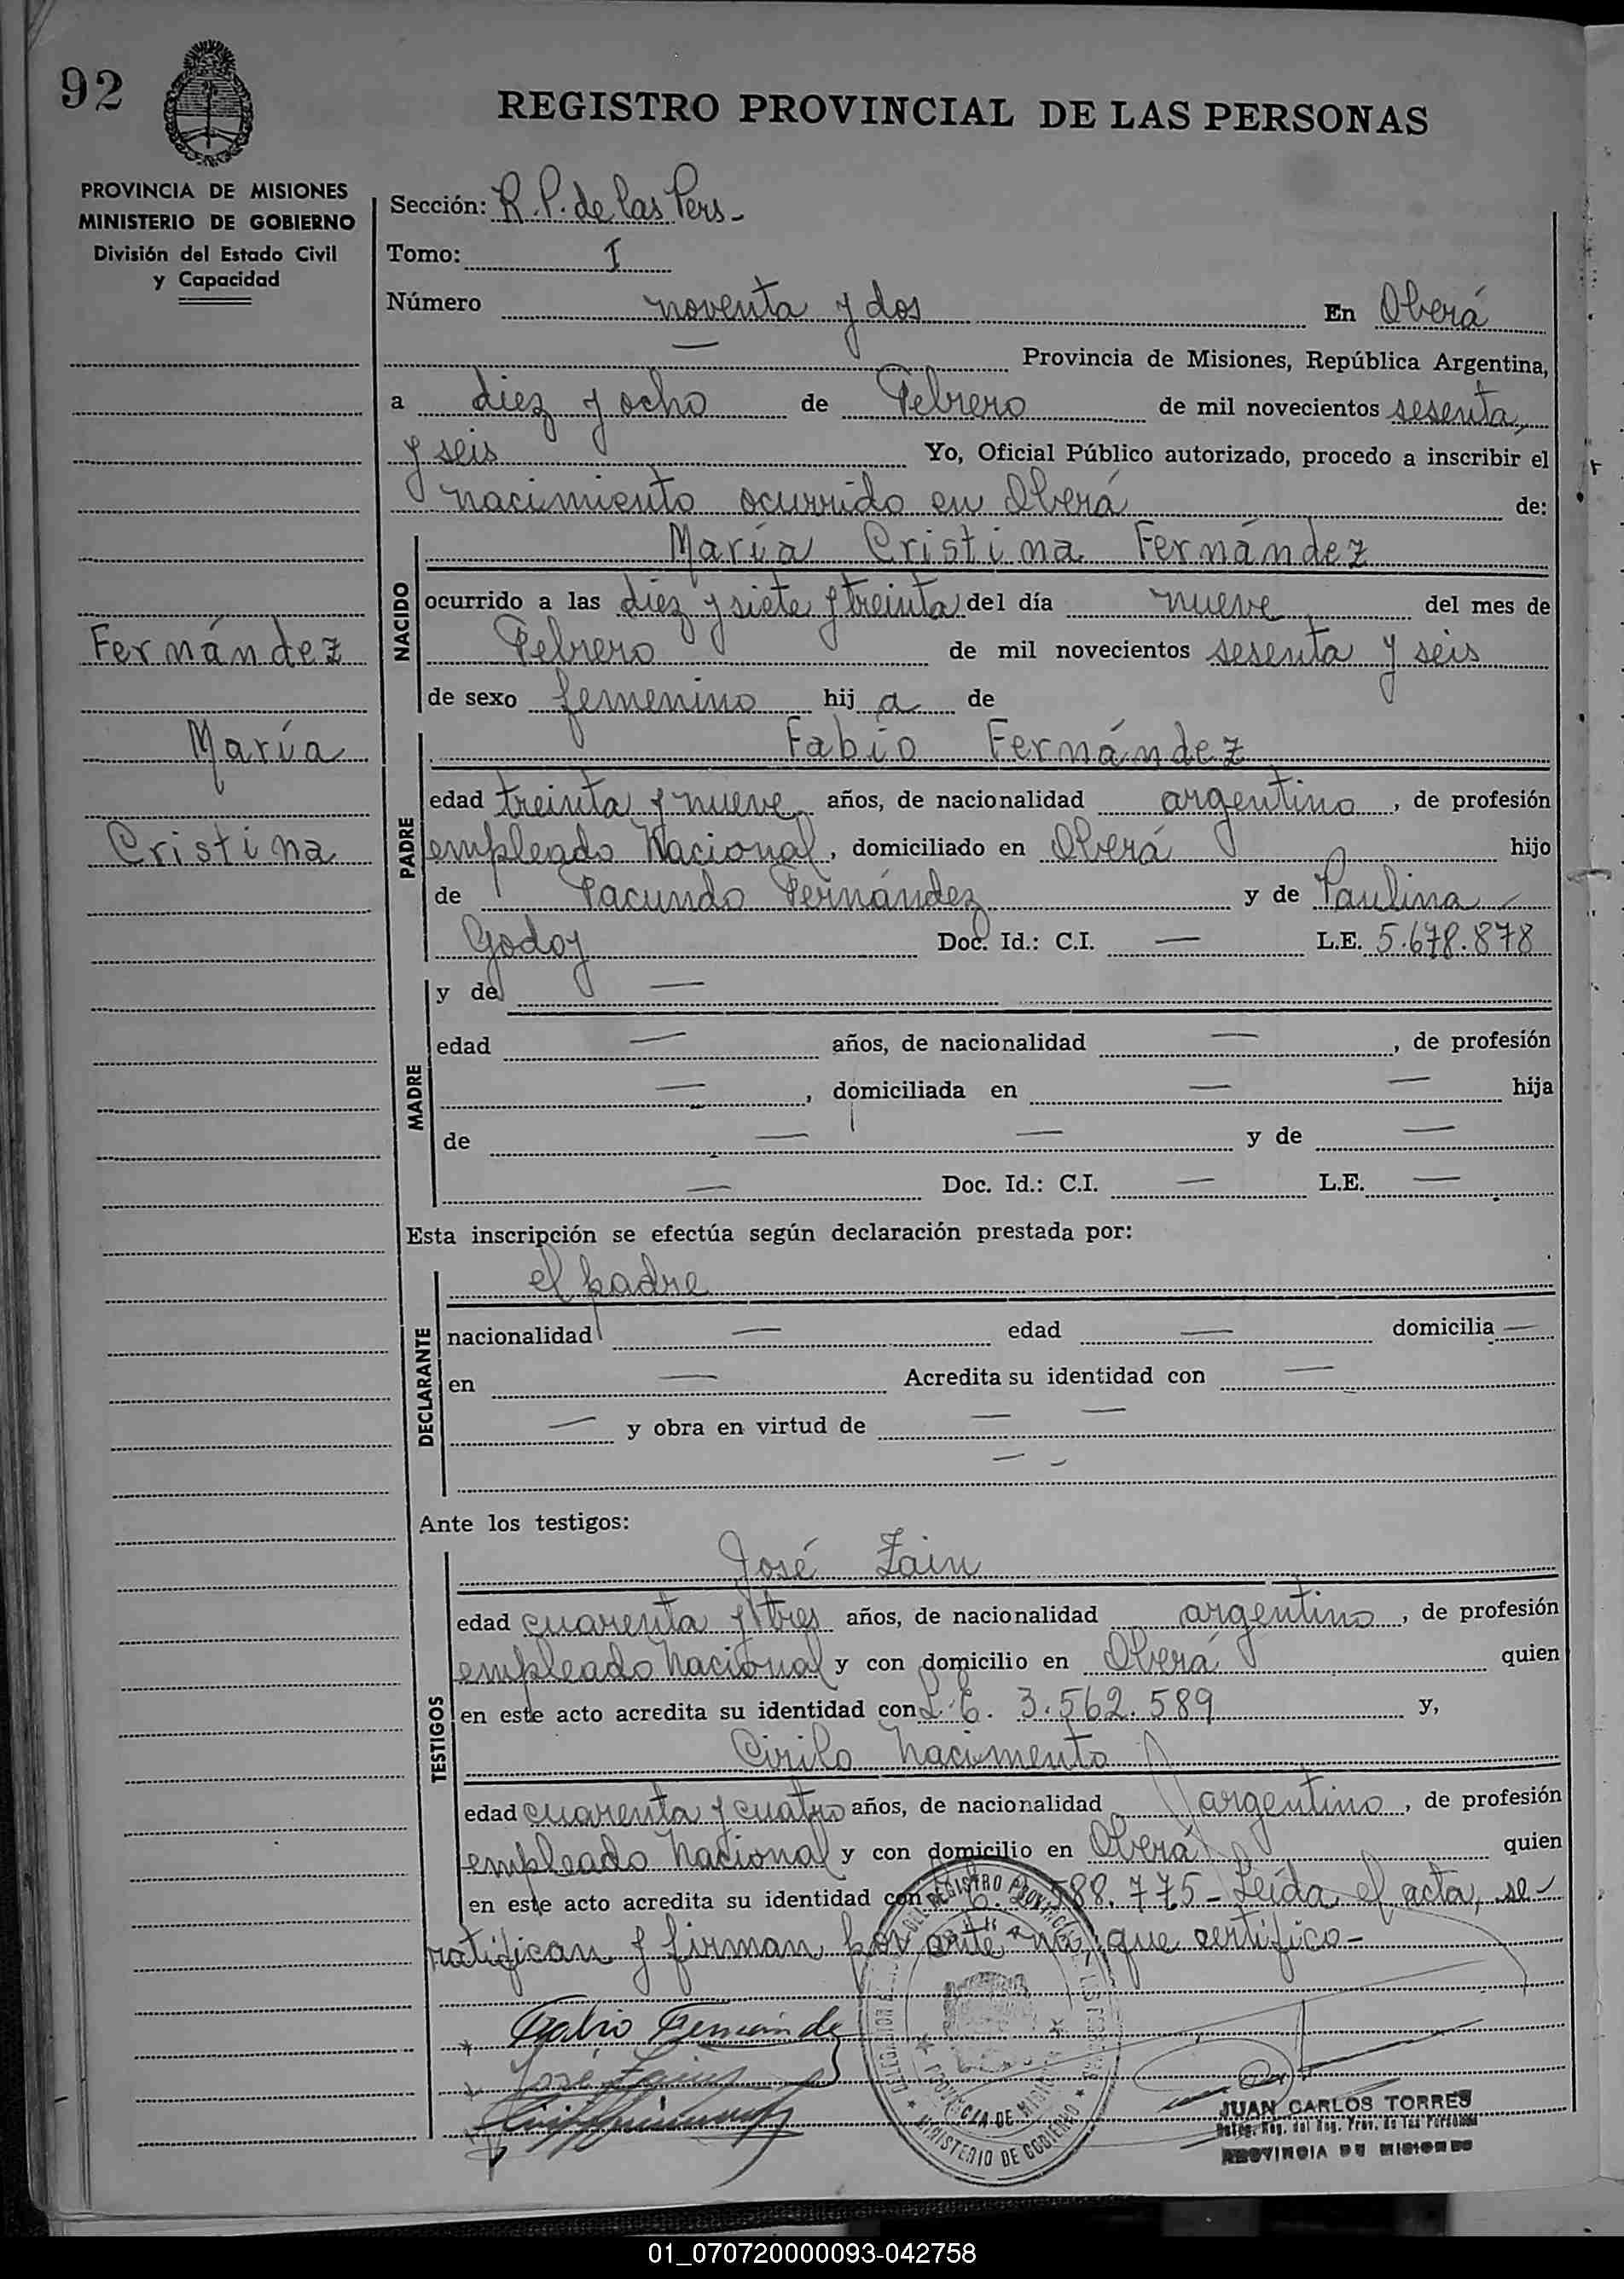 92
REGISTRO PROVINCIAL DE LAS PERSONAS
PROVINCIA DE MISIONES
MINISTERIO DE GOBIERNO
División del Estado Civil
y Capacidad
Sección: R. P. de las Pers-
Tomo: I
Número noventa y dos En Oberá
— Provincia de Misiones, República Argentina,
a diez y ocho de Febrero de mil novecientos sesenta,
y seis Yo, Oficial Público autorizado, procedo a inscribir el
nacimiento ocurrido en Oberá de:
Fernández
María
Cristina
NACIDO
María Cristina Fernández
ocurrido a las diez y siete y treinta del día nueve del mes de
Febrero de mil novecientos sesenta y seis
de sexo femenino hij a de
PADRE
Fabio Fernández
edad treinta y nueve años, de nacionalidad argentino, de profesión
empleado Nacional, domiciliado en Oberá hijo
de Facundo Fernández y de Paulina
Godoy Doc. Id.: C.I. — L.E. 5.678.878
MADRE
y de —
edad — años, de nacionalidad —, de profesión
—, domiciliada en — — hija
de — — y de —
— Doc. Id.: C.I. — L.E. —
Esta inscripción se efectúa según declaración prestada por:
DECLARANTE
el padre
nacionalidad — edad — domicilia —
en — Acredita su identidad con —
— y obra en virtud de — —
— —
Ante los testigos:
TESTIGOS
José Zain
edad cuarenta y tres años, de nacionalidad argentino, de profesión
empleado Nacional y con domicilio en Oberá quien
en este acto acredita su identidad con L. E. 3.562.589 y,
Cirilo Nacimento
edad cuarenta y cuatro años, de nacionalidad argentino, de profesión
empleado Nacional y con domicilio en Oberá quien
en este acto acredita su identidad con 588.775- Leída el acta, se
ratifican y firman por ante mí, que certifico-
Fabio Fernández
José Zain
JUAN CARLOS TORRES
Deleg. Reg. del Reg. Prov. de las Personas
PROVINCIA DE MISIONES
PROVINCIA DE MISIONES
MINISTERIO DE GOBIERNO
01_070720000093-042758